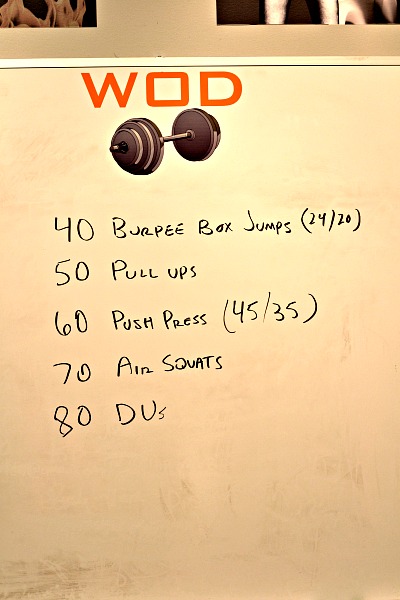 WOD
40 Burpee Box Jumps (24/20)
50 Pull ups
60 Push Press (45/35)
70 Air Squats
80 DUs